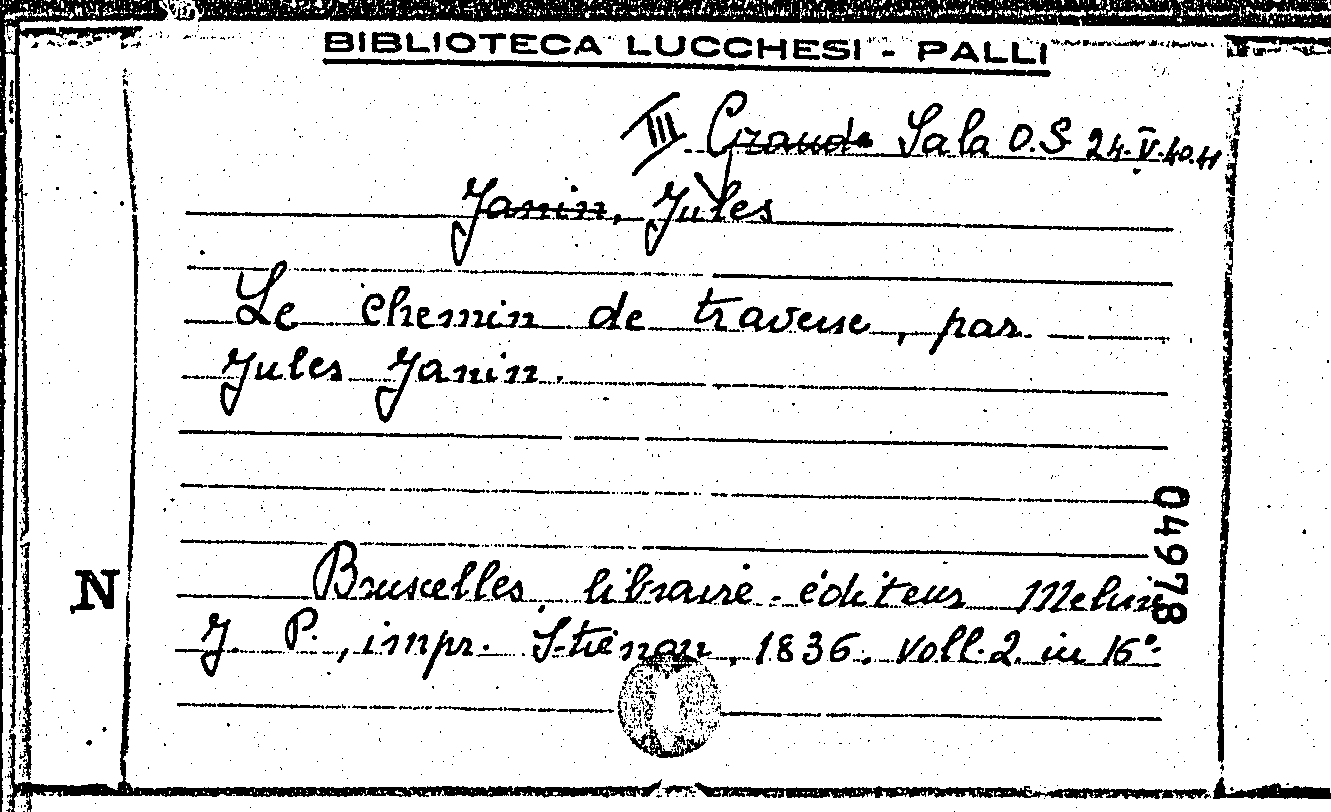 BIBLIOTECA LUCCHESI - PALLI
III Grande Sala O.S. 24.V.40.41
Janin, Jules
Le chemin de traverse, par
Jules Janin.
04978
N
Bruxelles, libraire-éditeur Meline
J. P., impr. Sténon, 1836. Voll. 2. in 16°.